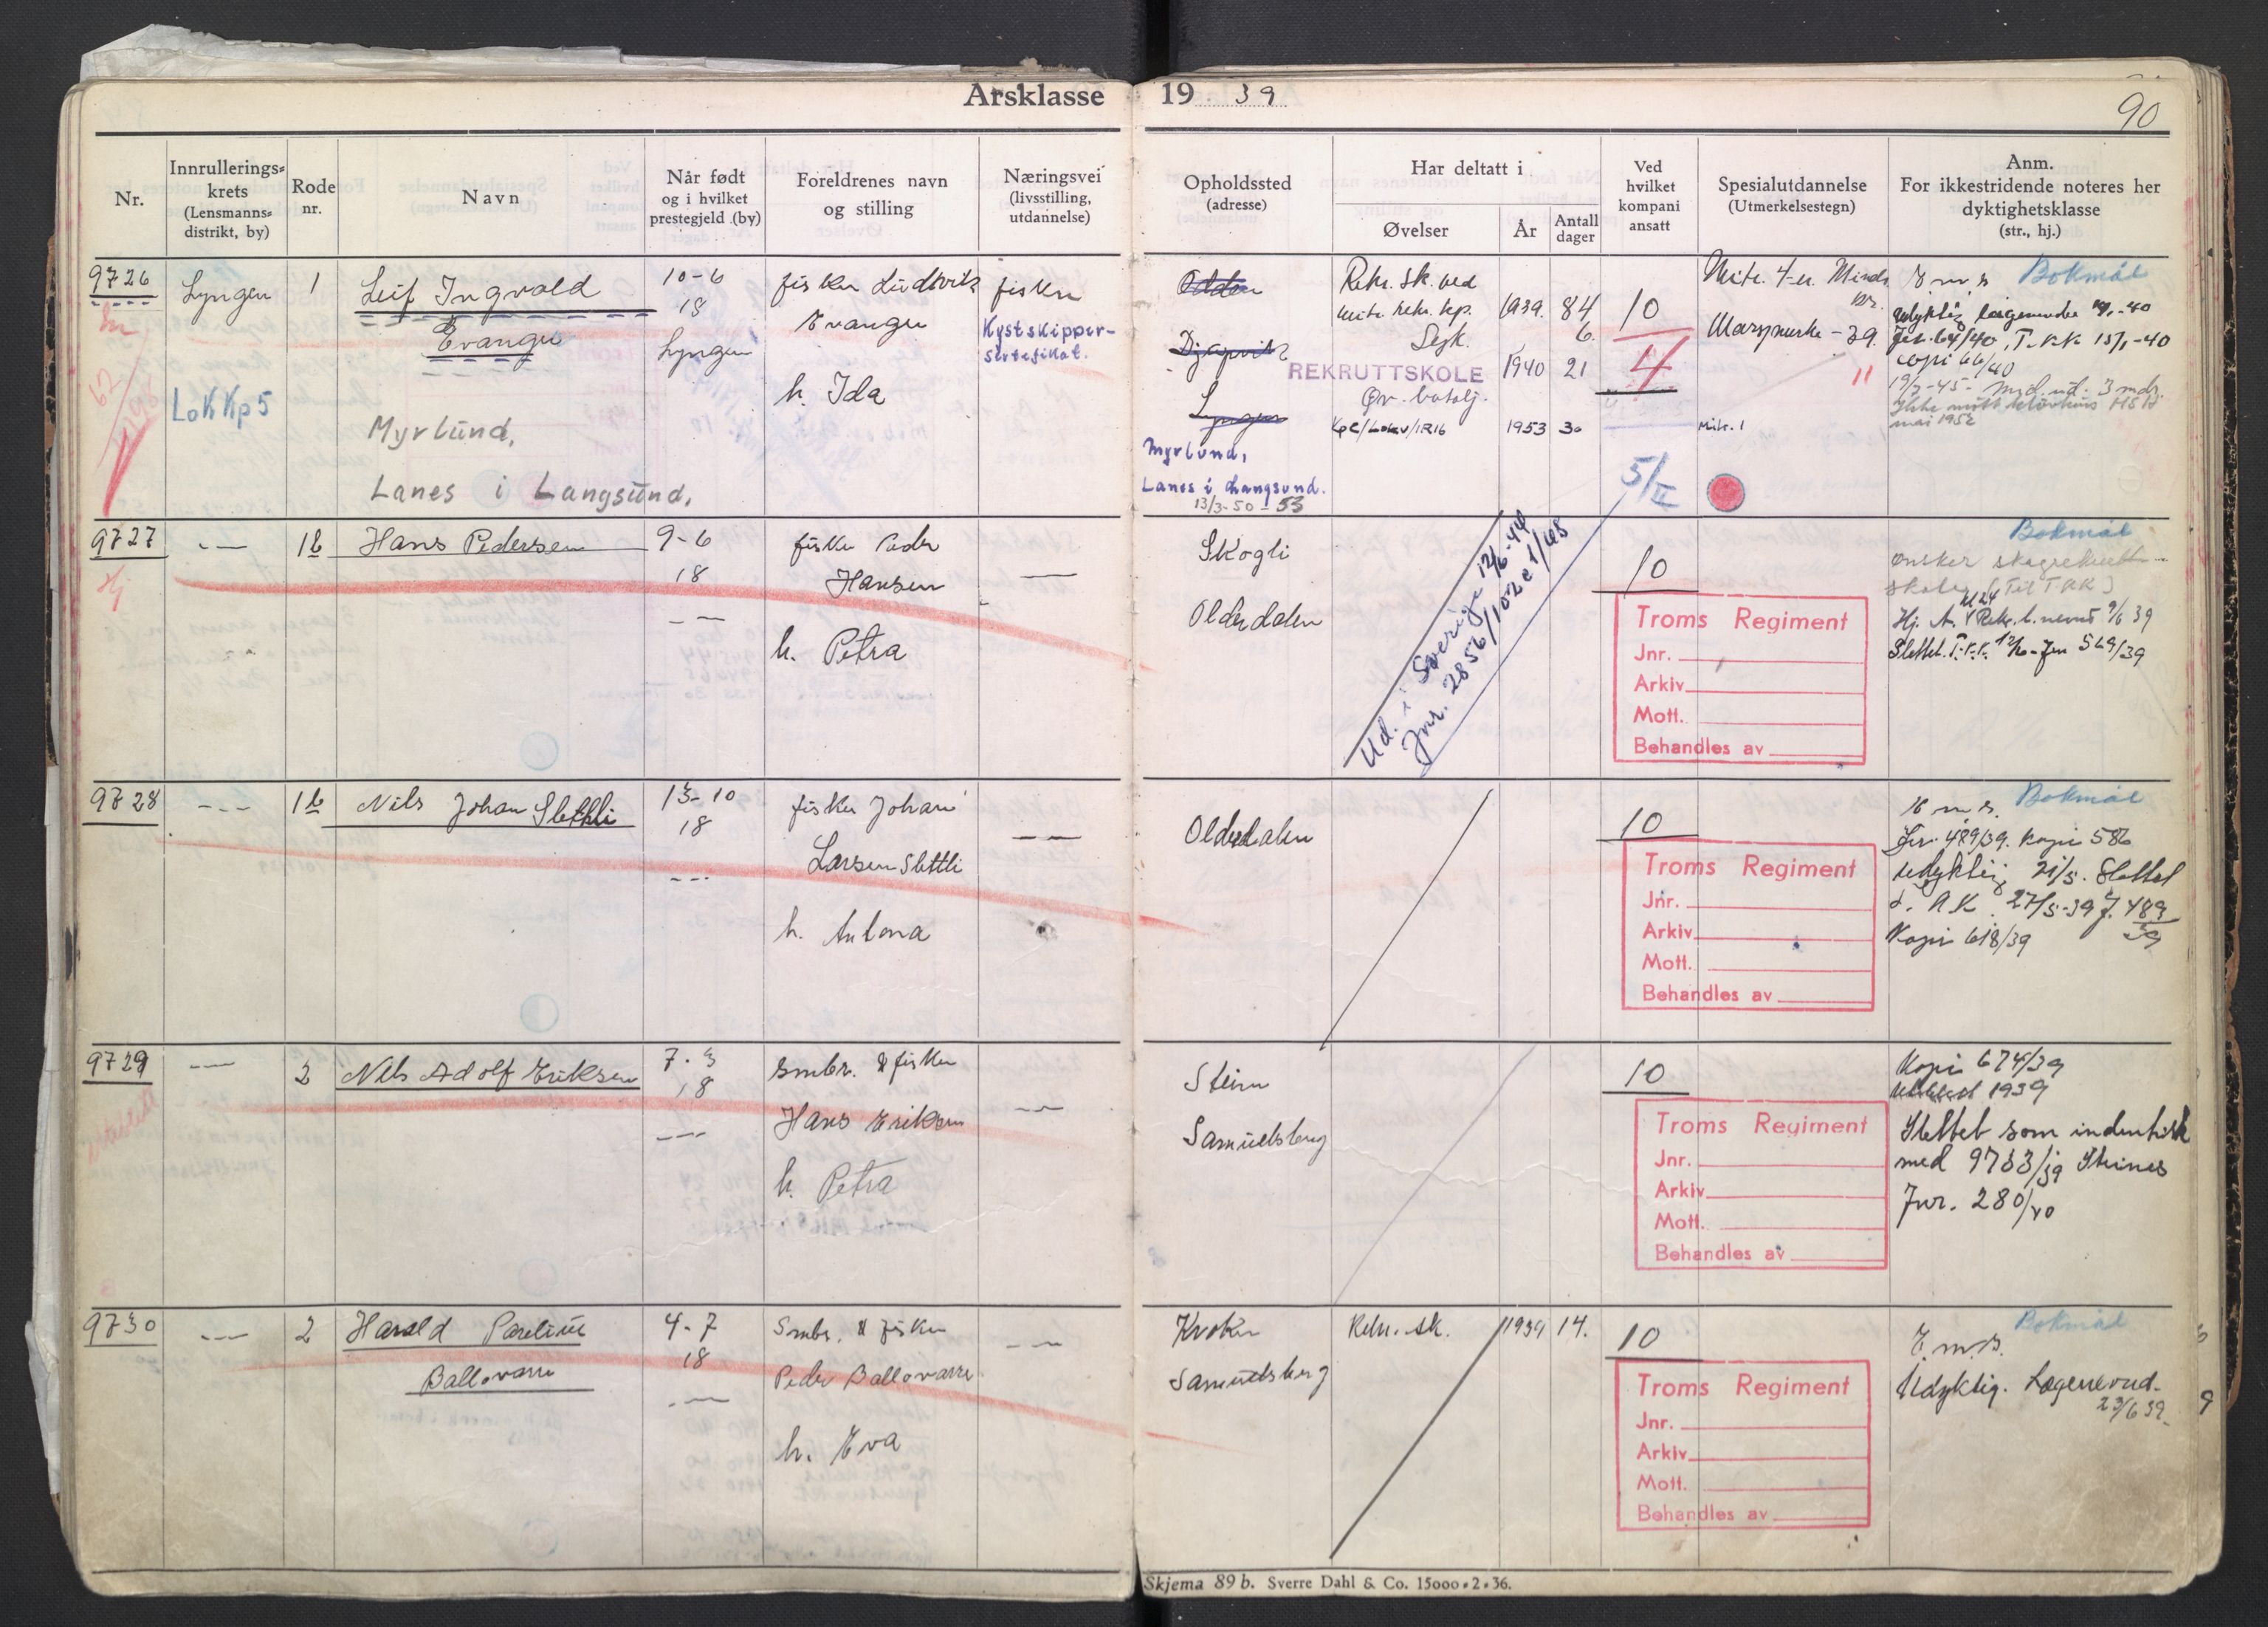 Årsklasse 19 39
90
Nr.
Innrullerings-
krets
(Lensmanns-
distrikt, by)
Rode
nr.
Navn
Når født
og i hvilket
prestegjeld (by)
Foreldrenes navn
og stilling
Næringsvei
(livsstilling,
utdannelse)
Opholdssted
(adresse)
Har deltatt i
Øvelser
År
Antall
dager
Ved
hvilket
kompani
ansatt
Spesialutdannelse
(Utmerkelsestegn)
Anm.
For ikkestridende noteres her
dyktighetsklasse
(str., hj.)
9726
Lyngen
LoKKp5
1
Leif Ingvald
Evangen
Myrlund,
Lanes i Langsund,
10-6
18
Lyngen
fisker Ludvik
Evangen
h. Ida
fisker
Kystskipper-
sertifikat.
Olden
Djupvik
Lyngen
Myrlund,
Lanes i Langsund.
13/3-50-53
Rekr. sk. ved
mitr. rekr. kp. 1939. 84
Sesk. 6.
REKRUTTSKOLE 1940 21
Øv. batalj.
1953 30
10
4
5/II
Marsjmerke - 39.
Mitr. 1
E m s Bokmål
Udyktig lægenevnd
Jnr. 64/40, T.kk 15/1-40
copi 66/40
mai 1952
9727
Hj
- - -
1b
Hans Pedersen
9-6
18
- - -
fisker Peder
Hansen
h. Petra
—
Skogli
Olderdalen
Ud. i Sverige 12/6-44
Jnr. 2856/1-02 e 1/48
10
Troms Regiment
Jnr.
Arkiv
Mott.
Behandles av
Bokmål
ønsker skogrekrutt-
skole (Til T.RK)
Hj. A. Rekr. l. nevnd 9/6 39
Slettet. T.r.k. 12/10-Jnr 569/39
9728
- - -
1b
Nils Johan Slettli
13-10
18
- - -
fisker Johan
Larsen Slettli
h. Antona
- - -
Olderdalen
10
Troms Regiment
Jnr.
Arkiv
Mott.
Behandles av
16 m. s. Bokmål
Jnr. 489/39. kopi 586
udyktig 21/5. Slettet
d. R K. 27/5-39 J. 489/39
Kopi 618/39
9729
- - -
2
Nils Adolf Eriksen
7-3
18
- - -
Smbr. & fisker
Hans Eriksen
h. Petra
- - -
Steinn
Samuelsberg
10
Troms Regiment
Jnr.
Arkiv
Mott.
Behandles av
Kopi 674/39
1939
Slettet som indentisk
med 9733/39 Steines
Jnr. 280/40
9730
- - -
2
Harald Parelius
Ballovarre
4-7
18
- - -
Smbr. & fisker
Peder Ballovarre
h. Eva
- - -
Kroken
Samuelsberg
Rekr. sk. 1939 14.
10
Troms Regiment
Jnr.
Arkiv
Mott.
Behandles av
Bokmål
E. m. s.
Udyktig. Lægenevnd.
23/6 39.
Skjema 89 b. Sverre Dahl & Co. 15000•2•36.